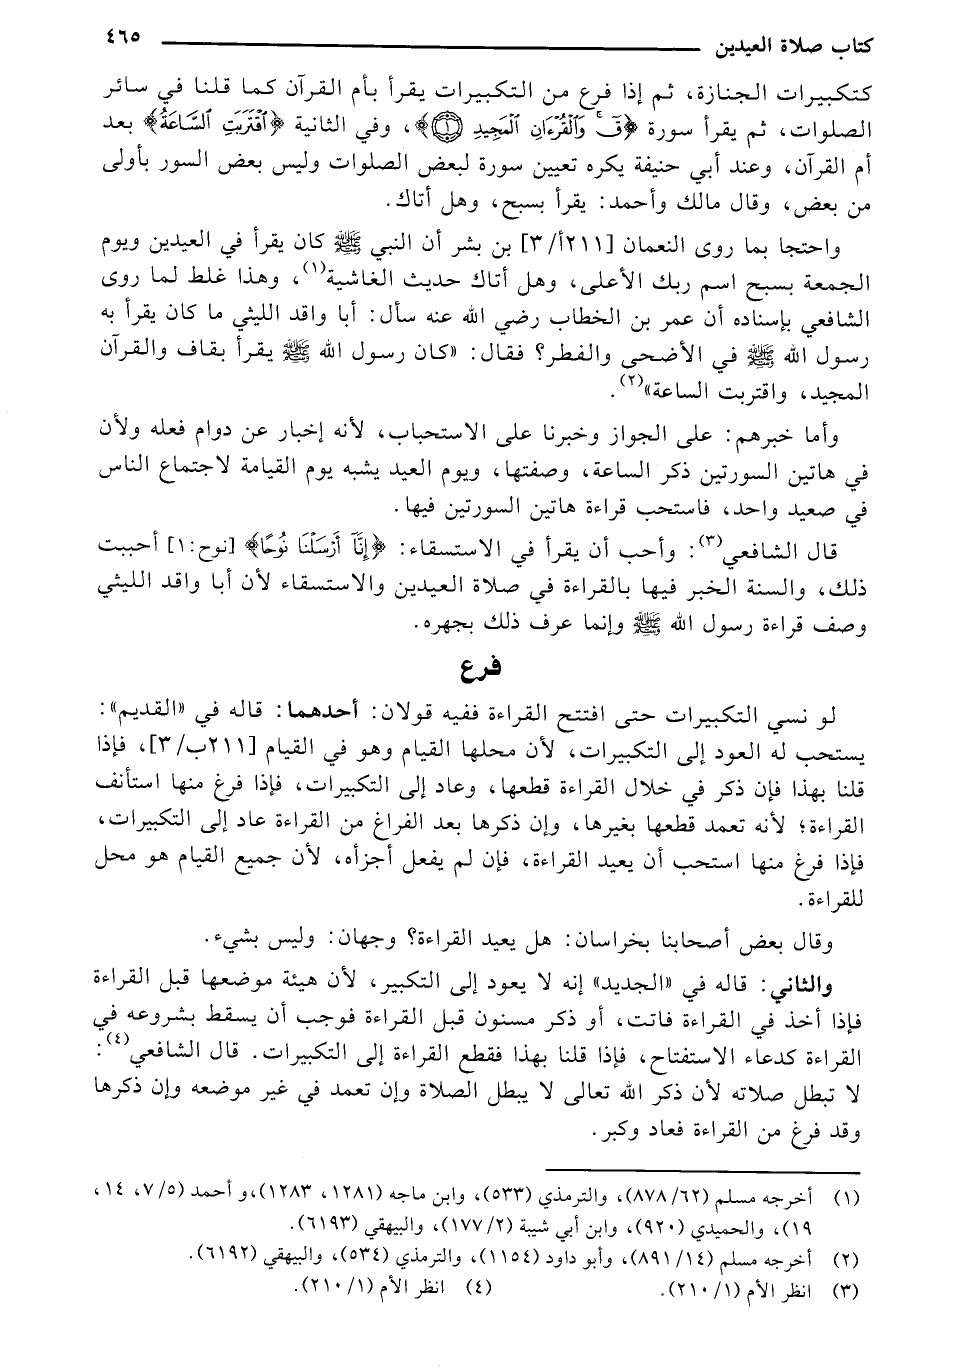 كتاب صلاة العيدين ٤٦٥
كتكبيرات الجنازة، ثم إذا فرع من التكبيرات يقرأ بأم القرآن كما قلنا في سائر
الصلوات، ثم يقرأ سورة ﴿قٓ وَالْقُرْءَانِ الْمَجِيدِ ۝١﴾، وفي الثانية ﴿اقْتَرَبَتِ السَّاعَةُ﴾ بعد
أم القرآن، وعند أبي حنيفة يكره تعيين سورة لبعض الصلوات وليس بعض السور بأولى
من بعض، وقال مالك وأحمد: يقرأ بسبح، وهل أتاك.
واحتجا بما روى النعمان [٢١١أ/ ٣] بن بشر أن النبي ﷺ كان يقرأ في العيدين ويوم
الجمعة بسبح اسم ربك الأعلى، وهل أتاك حديث الغاشية(١)، وهذا غلط لما روى
الشافعي بإسناده أن عمر بن الخطاب رضي الله عنه سأل: أبا واقد الليثي ما كان يقرأ به
رسول الله ﷺ في الأضحى والفطر؟ فقال: «كان رسول الله ﷺ يقرأ بقاف والقرآن
المجيد، واقتربت الساعة»(٢).
وأما خبرهم: على الجواز وخبرنا على الاستحباب، لأنه إخبار عن دوام فعله ولأن
في هاتين السورتين ذكر الساعة، وصفتها، ويوم العيد يشبه يوم القيامة لاجتماع الناس
في صعيد واحد، فاستحب قراءة هاتين السورتين فيها.
قال الشافعي(٣): وأحب أن يقرأ في الاستسقاء: ﴿إِنَّآ أَرْسَلْنَا نُوحًا﴾ [نوح: ١] أحببت
ذلك، والسنة الخبر فيها بالقراءة في صلاة العيدين والاستسقاء لأن أبا واقد الليثي
وصف قراءة رسول الله ﷺ وإنما عرف ذلك بجهره.
فرع
لو نسي التكبيرات حتى افتتح القراءة ففيه قولان: أحدهما: قاله في «القديم»:
يستحب له العود إلى التكبيرات، لأن محلها القيام وهو في القيام [٢١١ب/ ٣]، فإذا
قلنا بهذا فإن ذكر في خلال القراءة قطعها، وعاد إلى التكبيرات، فإذا فرغ منها استأنف
القراءة؛ لأنه تعمد قطعها بغيرها، وإن ذكرها بعد الفراغ من القراءة عاد إلى التكبيرات،
فإذا فرغ منها استحب أن يعيد القراءة، فإن لم يفعل أجزأه، لأن جميع القيام هو محل
للقراءة.
وقال بعض أصحابنا بخراسان: هل يعيد القراءة؟ وجهان: وليس بشيء.
والثاني: قاله في «الجديد» إنه لا يعود إلى التكبير، لأن هيئة موضعها قبل القراءة
فإذا أخذ في القراءة فاتت، أو ذكر مسنون قبل القراءة فوجب أن يسقط بشروعه في
القراءة كدعاء الاستفتاح، فإذا قلنا بهذا فقطع القراءة إلى التكبيرات. قال الشافعي(٤):
لا تبطل صلاته لأن ذكر الله تعالى لا يبطل الصلاة وإن تعمد في غير موضعه وإن ذكرها
وقد فرغ من القراءة فعاد وكبر.
(١) أخرجه مسلم (٨٧٨/٦٢)، والترمذي (٥٣٣)، وابن ماجه (١٢٨١، ١٢٨٣)، و أحمد (٧/٥، ١٤،
١٩)، والحميدي (٩٢٠)، وابن أبي شيبة (١٧٧/٢)، والبيهقي (٦١٩٣).
(٢) أخرجه مسلم (٨٩١/١٤)، وأبو داود (١١٥٤)، والترمذي (٥٣٤)، والبيهقي (٦١٩٢).
(٣) انظر الأم (٢١٠/١). (٤) انظر الأم (٢١٠/١).